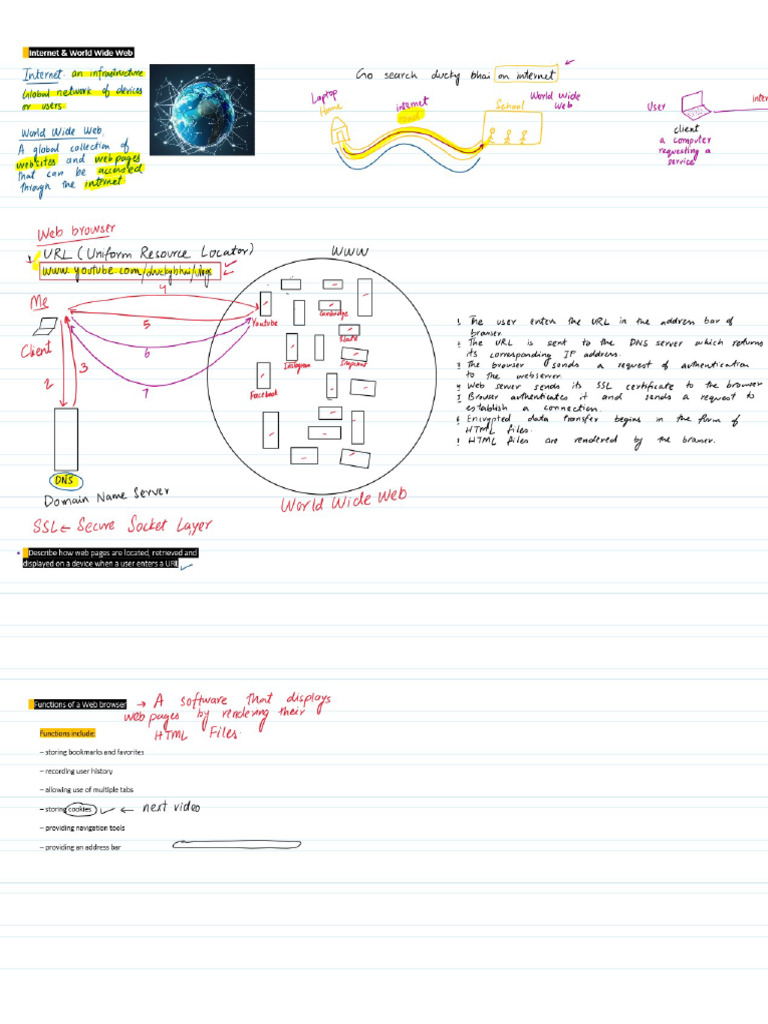 Internet & World Wide Web
Internet- an infrastructure
Global network of devices
or users
World Wide Web.
A global collection of
websites and webpages
that can be accessed
through the internet
Go search ducky bhai on internet
Laptop
Home
internet
road
School
World Wide
Web
User
inter
client
a computer
requesting a
service
Web browser
URL (Uniform Resource Locator)
www.youtube.com/duckybhai/vlogs
WWW
Me
Client
4
5
6
7
2
3
Youtube
Cambridge
Instagram
Facebook
DNS
Domain Name Server
World Wide Web
SSL ← Secure Socket Layer
1 The user enters the URL in the address bar of
browser.
2 The URL is sent to the DNS server which returns
its corresponding IP address.
3 The browser sends a request of authentication
to the webserver.
4 Web server sends its SSL certificate to the browser
5 Browser authenticates it and sends a request to
establish a connection.
6 Encrypted data transfer begins in the form of
HTML files.
HTML files are rendered by the browser.
• Describe how web pages are located, retrieved and
displayed on a device when a user enters a URL
Functions of a Web browser → A software that displays
web pages by rendering their
HTML Files.
Functions include:
– storing bookmarks and favorites
– recording user history
– allowing use of multiple tabs
– storing cookies ← next video
– providing navigation tools
– providing an address bar